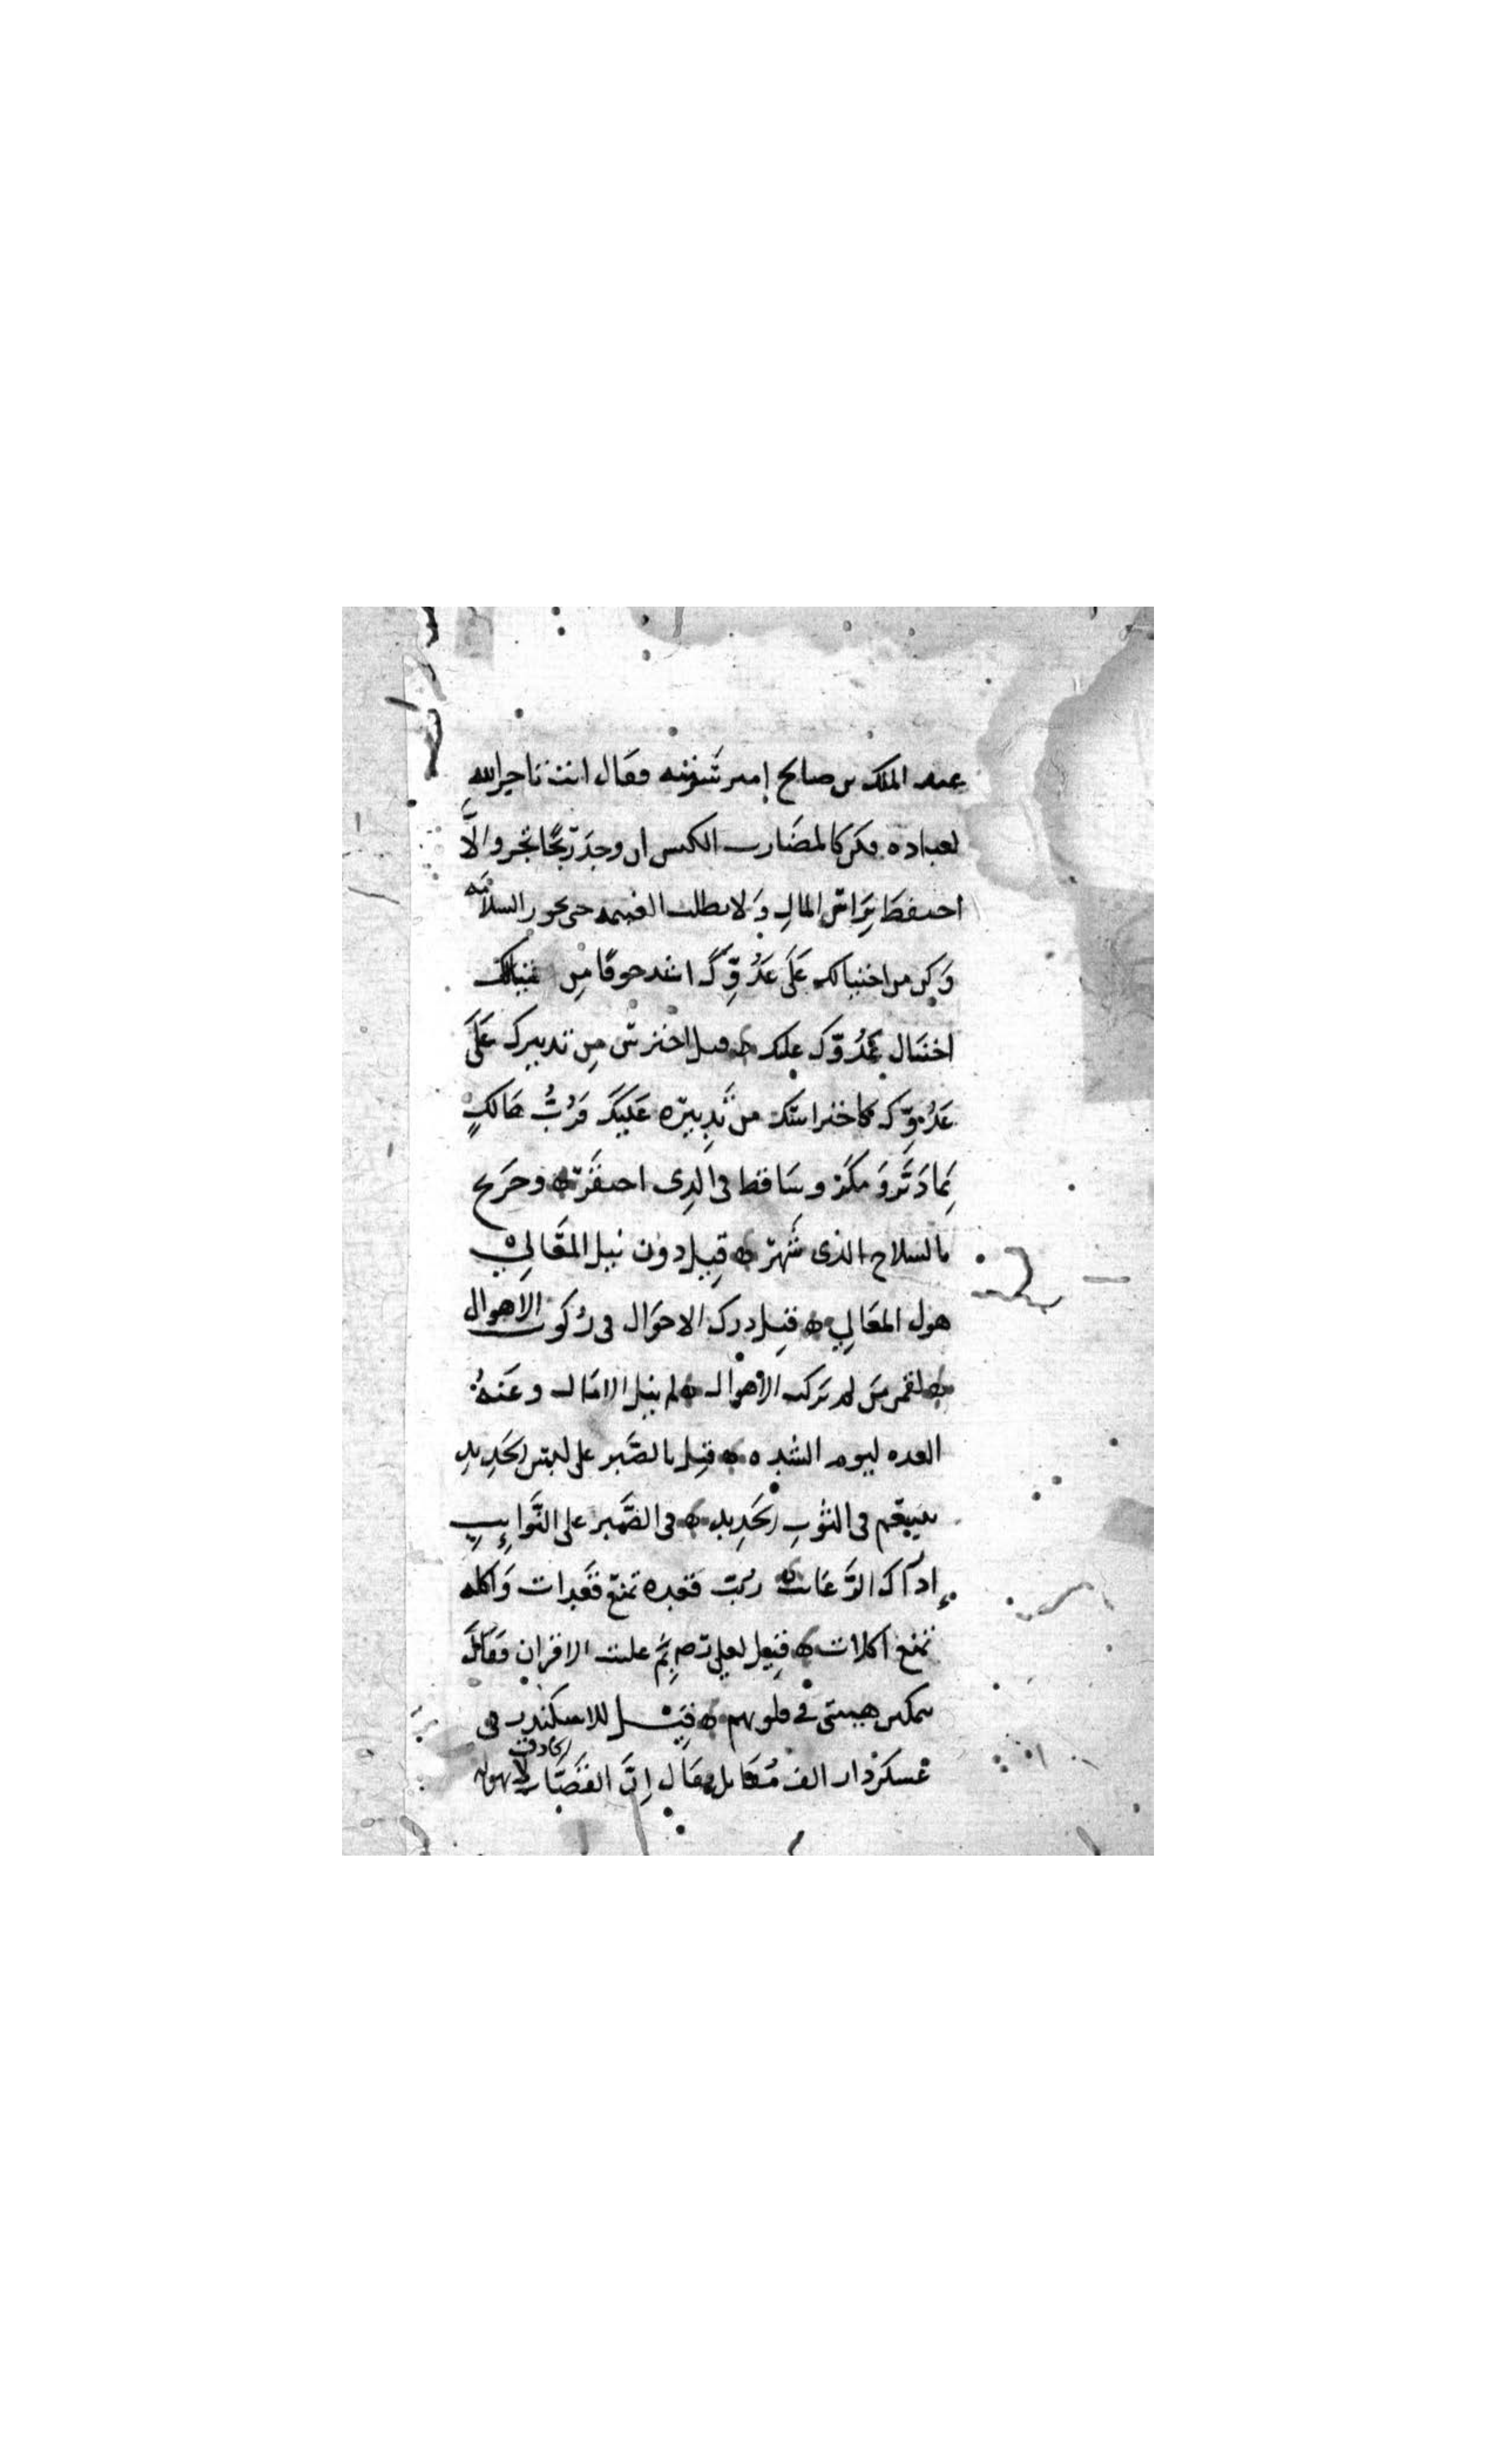 عبد الملك بن صالح امير سريه فقال انت تاجر الله
لعباده فكن كالمضارب الكيس ان وجد ربحا تجر والا
احتفظ براس المال ولا تطلب الغنيمه حتى تحوز السلامه
وكن من احتيالك على عدوك اشد خوفا من
احتيال عدوك عليك قيل احترس من تدبيرك على
عدوك كاحتراسك من تدبيره عليك فرب هالك
بما دبر ومكر وساقط في الذي احتفر وجريح
بالسلاح الذي شهر قيل دون نيل المعالي
هول العوالي قيل درك الاحوال في ركوب الاهوال
من لم يركب الاهوال لم ينل الامال وعنه
العده ليوم الشده قيل بالصبر على لبس الحديد
تتنعم في الثوب الجديد في الصبر على النوايب
ادراك الرغايب ربت قعده تمنع قعدات واكله
تمنع اكلات قيل لعلي رضه بم غلبت الاقران فقال
بتمكن هيبتي في قلوبهم قيل للاسكندر في
عسكر دارا الف مقاتل فقال ان القصاب الحاذق لا يهوله